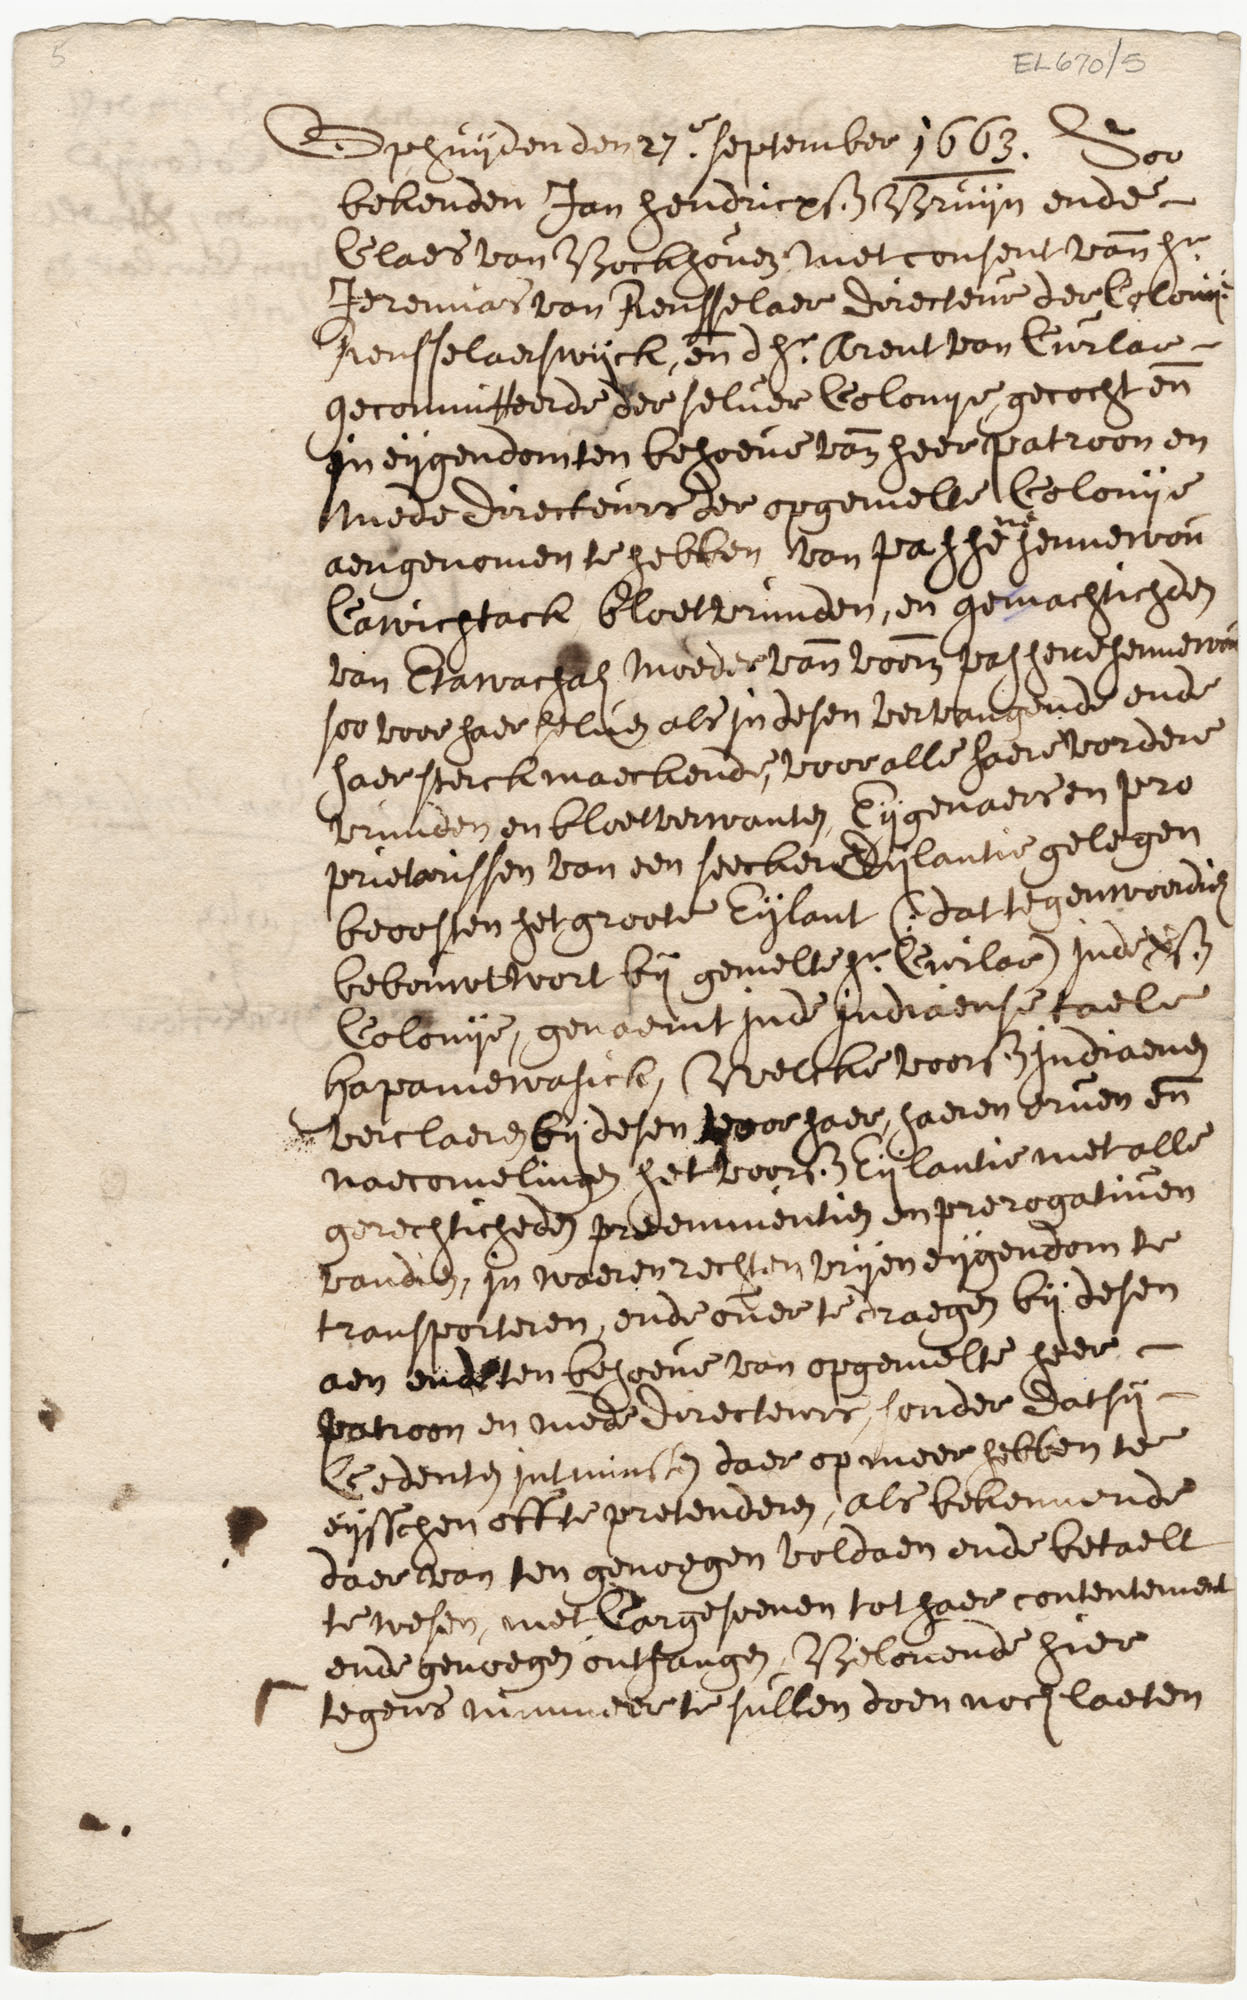 5
EL670/5
Op huijden den 27e. september 1663. Soo
bekenden Jan hendricxsz Bruijn ende
Claes van Bockhoven met consent van hr.
Jeremias van Rensselaer directeur der Colonije
Rensselaerswijck, en d hr. Arent van Curlar
gecommitteerde der selver Colonije, gecocht en
in eijgendom ten behoeve van heer patroon en
mede directeurs der opgemelte Colonije
aengenomen te hebben van pahhenehennewou
Cawichtack bloetvrunden, en gemachtichden
van Etawachah moeder van voorn pahhenehennewou
soo voor haer selven als in desen vervangende ende
haer sterck maeckende, voor alle haere vordere
vrunden en bloetverwanten, Eijgenaers en pro
prietarissen van een seecker Eijlantie gelegen
beoosten het groote Eijlant (dat tegenwoordich
bebouwt wort bij gemelte hr. Curlar) in de
Colonije, genaemt in de indiaense taele
hapamewasick, Welcke voorsz indiaenen
verclaeren bij desen voor haer, haeren erven en
naecomelingen het voorsz Eijlantie met alle
gerechticheden preeminentien en prerogativen
van dien, in waeren rechten vrijen eijgendom te
transporteren, ende over te draegen bij desen
aen ende ten behoeve van opgemelte heer
patroon en mede directeurs, sonder dat sij
Cedenten int minsten daer op meer hebben te
eijsschen ofte pretenderen, als bekennende
daer van ten genoegen voldaen ende betaelt
te wesen, met Cargesoenen tot haer contentement
ende genoegen ontfangen, Belovende hier
tegens nimmeer te sullen doen noch laeten